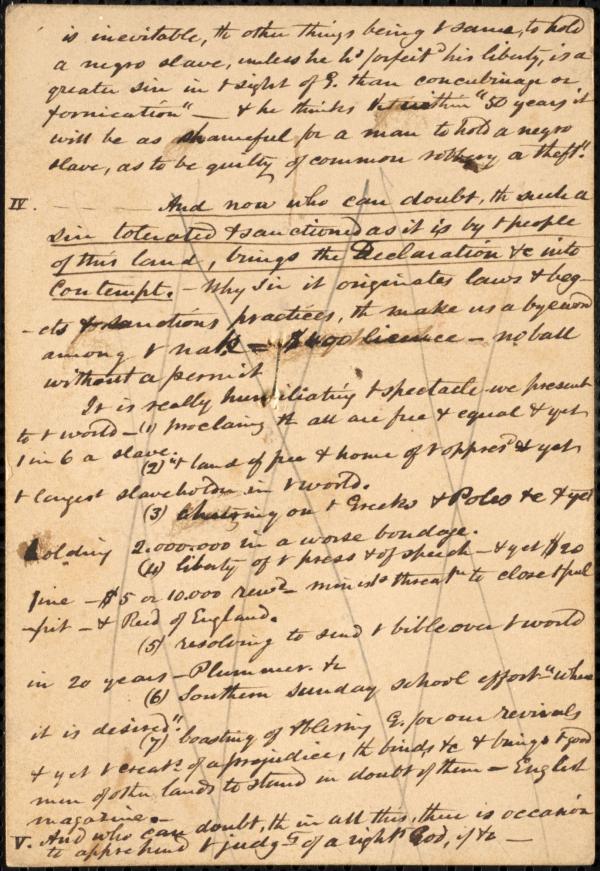 is inevitable, th other things being t same, to hold
a negro slave, unless he hs forfeitd his liberty, is a
greater sin in t sight of G. than concubinage or
fornication" — & he thinks tt within "50 years it
will be as shameful for a man to hold a negro
slave, as to be guilty of common robbery or theft".
IV. And now who can doubt, th such a
sin tolerated & sanctioned as it is by t people
of this land, brings the Declaration &c into
Contempt. — Why Sir it originates laws & beg-
-ets & sanctions practices, th make us a byeword
among t nats — $400 licence — no ball
without a permit
It is really humiliating t spectacle we present
to t world — (1) proclaimg th all are free & equal & yet
1 in 6 a slave.
(2) "t land of free & home of t oppresd" & yet
t largest slaveholder in t world.
(3) cheering on t Greeks & Poles &c & yet
holding 2.000.000 in a worse bondage.
(4) liberty of t press & of speech — & yet $20
fine — $5 or 10.000 rewd — minists threatn to close t pul
-pit — & Reed of England.
(5) resolving to send t bible over t world
in 20 years — Plummer. &c
(6) Southern Sunday school effort "where
it is desired".
(7) boasting of t blessing G. for our revivals
& yet t creats of a prejudice, th binds &c & brings t good
men of other lands to stand in doubt of them — English
magazine.
V. And who can doubt, th in all this, there is occasion
to apprehend t judgts of a rights God, if &c —